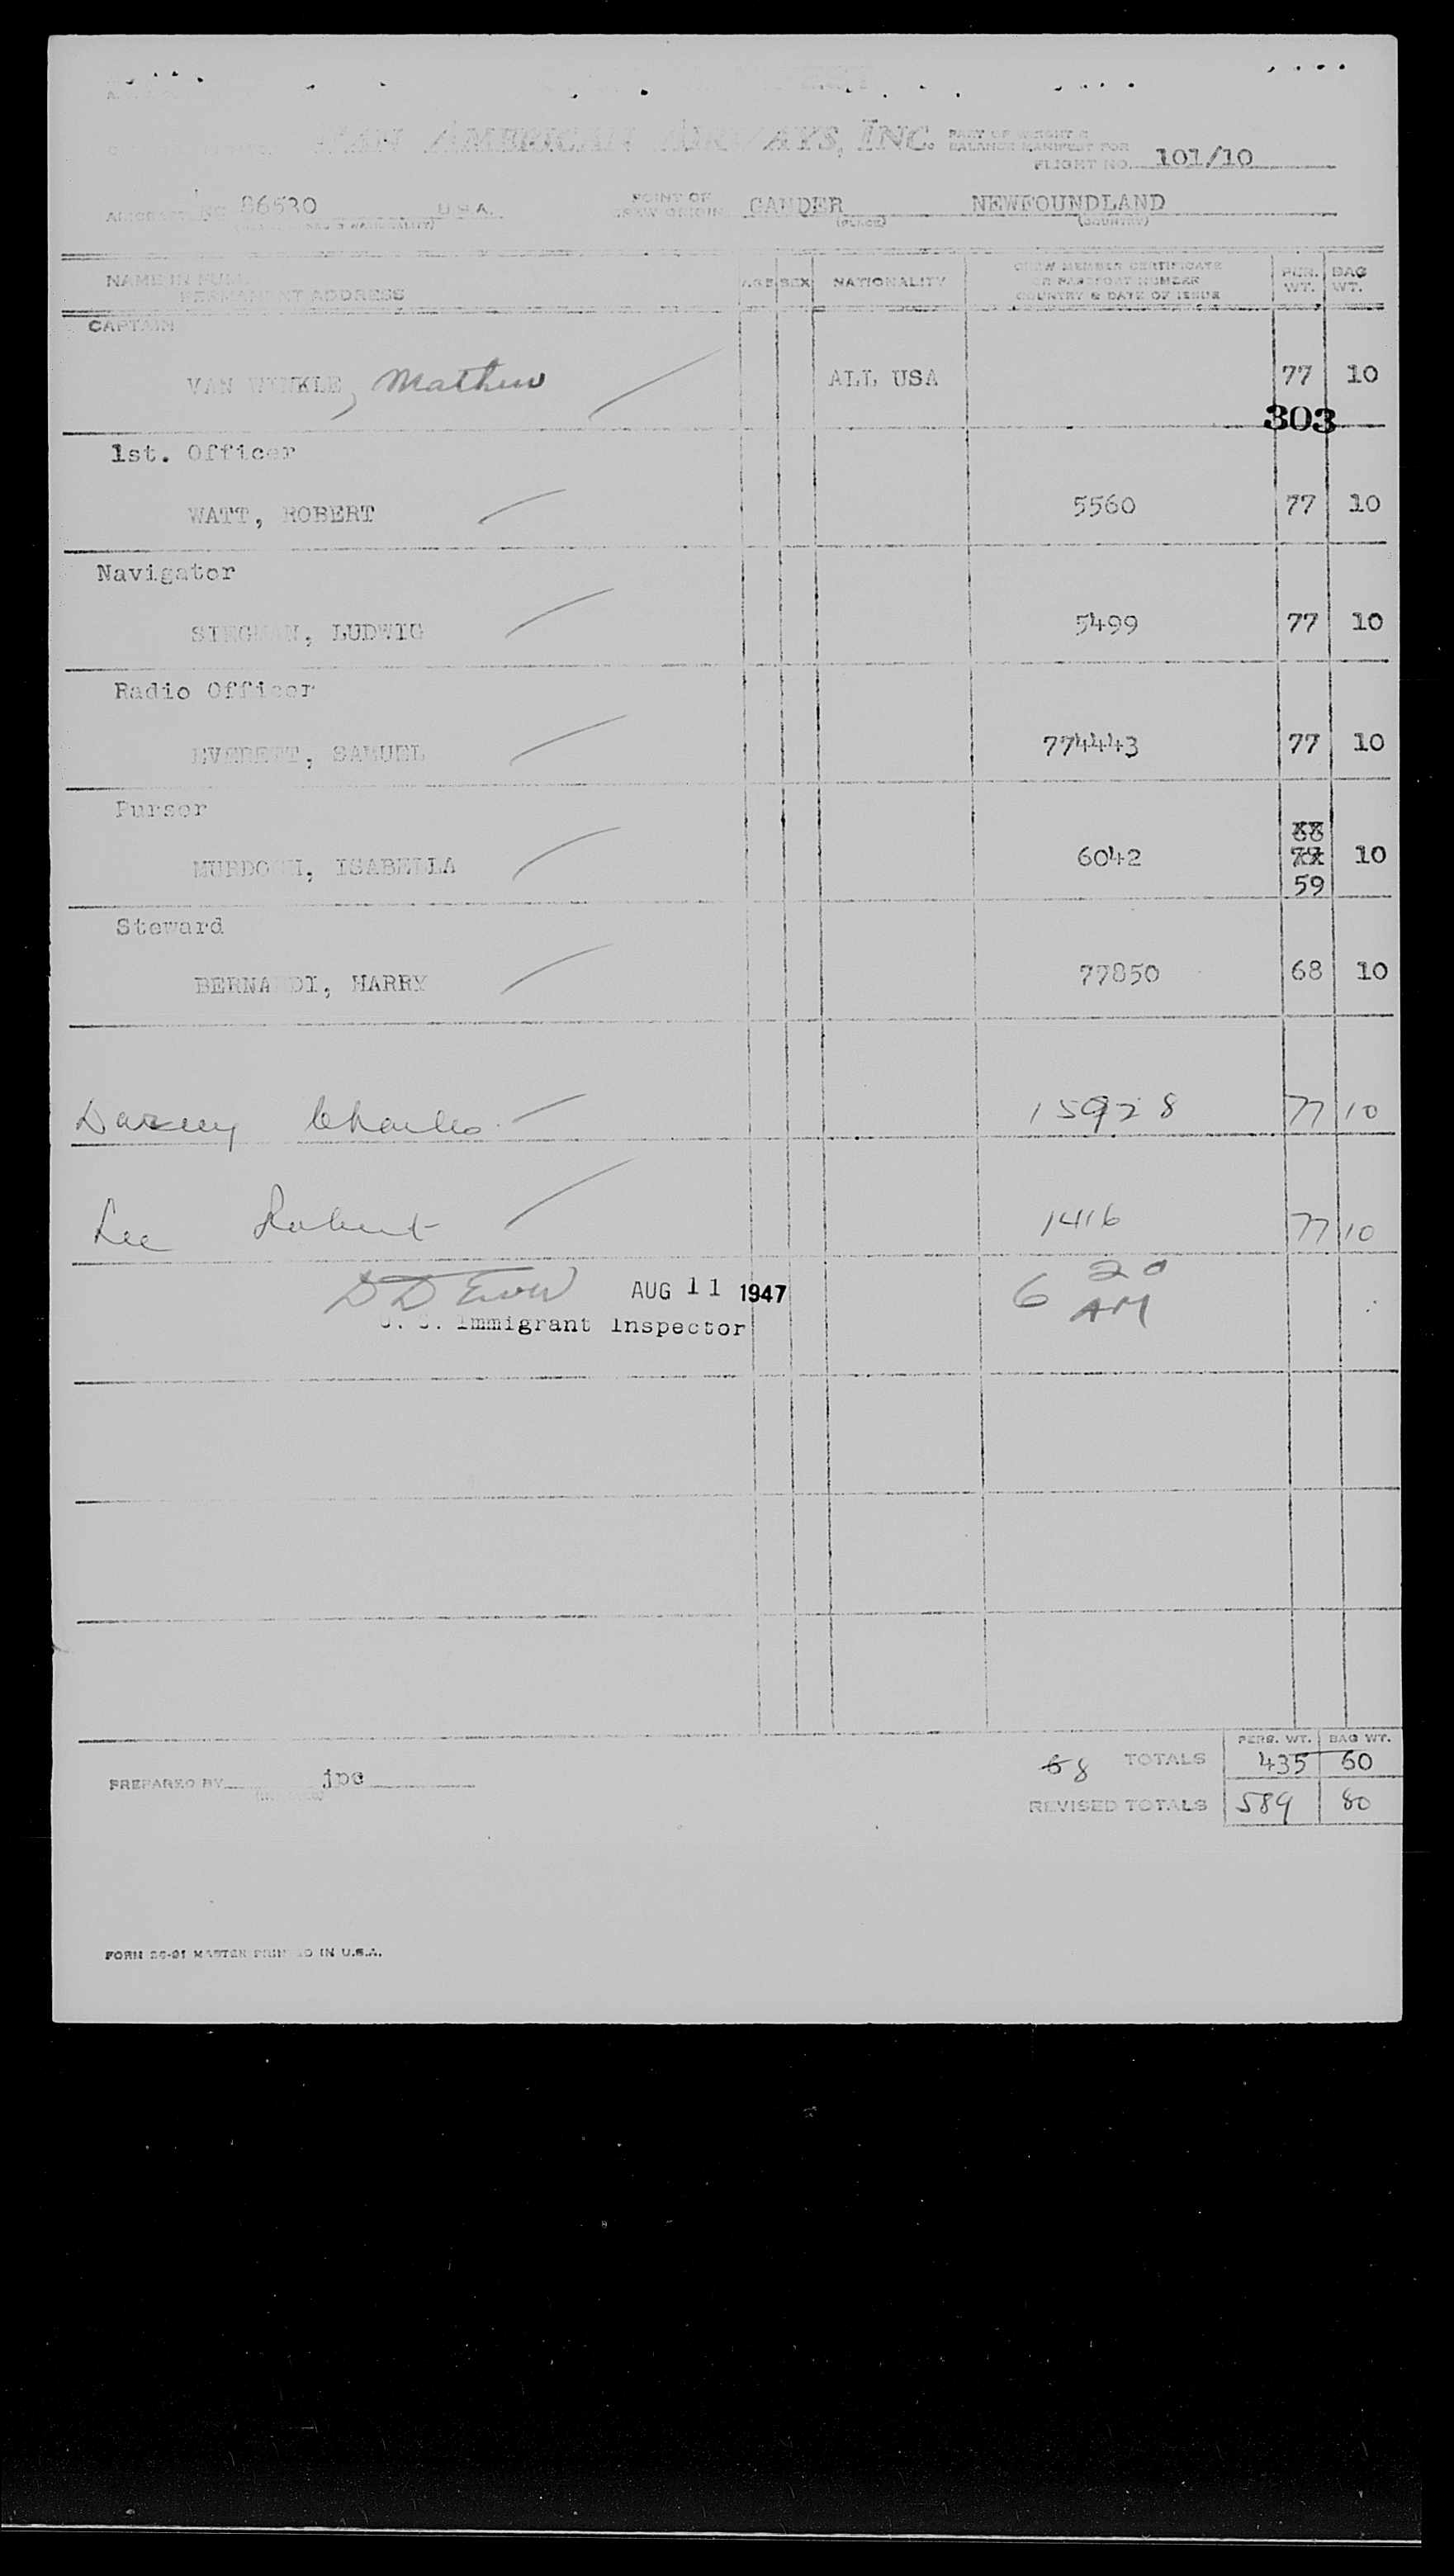 PAN AMERICAN AIRWAYS, INC. PART OF WEIGHT & BALANCE MANIFEST FOR
FLIGHT NO. 101/10
AIRCRAFT NC 86530 U.S.A. POINT OF CREW ORIGIN GANDER NEWFOUNDLAND
(PLACE) (COUNTRY)
NAME IN FULL
PERMANENT ADDRESS
AGE SEX NATIONALITY
CREW MEMBER CERTIFICATE
OR PASSPORT NUMBER
COUNTRY & DATE OF ISSUE
PER. WT. BAG WT.
CAPTAIN
VAN WINKLE, Mathew ALL USA 77 10
303
1st. Officer
WATT, ROBERT 5560 77 10
Navigator
STEGMAN, LUDWIG 5499 77 10
Radio Officer
EVERETT, SAMUEL 774443 77 10
Purser
MURDOCH, ISABELLA 6042 59 10
Steward
BERNARDI, HARRY 77850 68 10
Charles 15928 77 10
Lee Robert 1416 77 10
AUG 11 1947 6 20 AM
U. S. Immigrant Inspector
PERS. WT. BAG WT.
6 8 TOTALS 435 60
PREPARED BY jpc
REVISED TOTALS 589 80
FORM 26-91 MASTER PRINTED IN U.S.A.